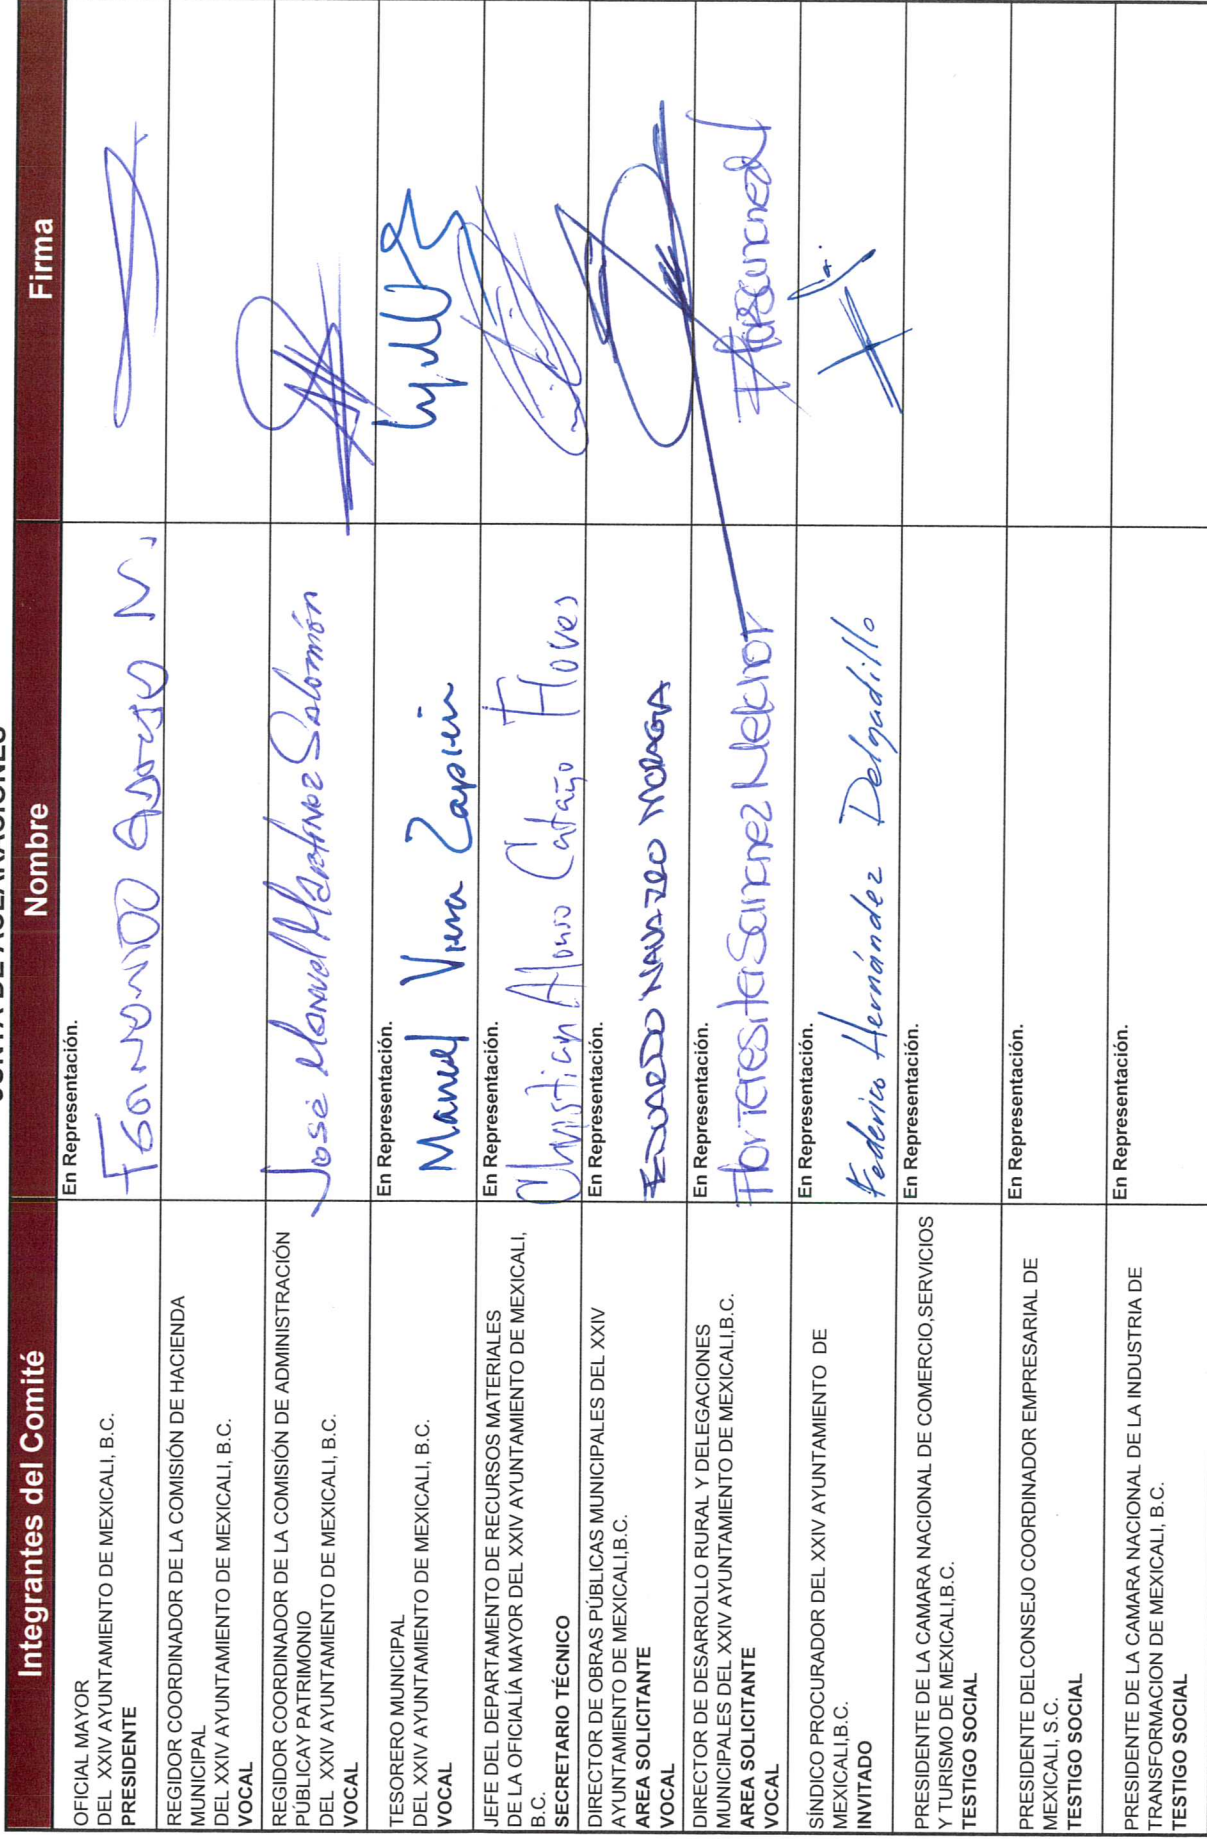 Integrantes del Comité
Nombre
Firma
OFICIAL MAYOR
DEL XXIV AYUNTAMIENTO DE MEXICALI, B.C.
PRESIDENTE
En Representación.
REGIDOR COORDINADOR DE LA COMISIÓN DE HACIENDA
MUNICIPAL
DEL XXIV AYUNTAMIENTO DE MEXICALI, B.C.
VOCAL
REGIDOR COORDINADOR DE LA COMISIÓN DE ADMINISTRACIÓN
PÚBLICAY PATRIMONIO
DEL XXIV AYUNTAMIENTO DE MEXICALI, B.C.
VOCAL
José Manuel Martínez Salomón
TESORERO MUNICIPAL
DEL XXIV AYUNTAMIENTO DE MEXICALI, B.C.
VOCAL
En Representación.
Manuel Viera Zapién
JEFE DEL DEPARTAMENTO DE RECURSOS MATERIALES
DE LA OFICIALÍA MAYOR DEL XXIV AYUNTAMIENTO DE MEXICALI,
B.C.
SECRETARIO TÉCNICO
En Representación.
Christian Alonso Cataño Flores
DIRECTOR DE OBRAS PÚBLICAS MUNICIPALES DEL XXIV
AYUNTAMIENTO DE MEXICALI,B.C.
AREA SOLICITANTE
VOCAL
En Representación.
EDUARDO NAVARRO MORAGA
DIRECTOR DE DESARROLLO RURAL Y DELEGACIONES
MUNICIPALES DEL XXIV AYUNTAMIENTO DE MEXICALI,B.C.
AREA SOLICITANTE
VOCAL
En Representación.
Flor Teresita Sanchez
SÍNDICO PROCURADOR DEL XXIV AYUNTAMIENTO DE
MEXICALI,B.C.
INVITADO
En Representación.
Federico Hernández Delgadillo
PRESIDENTE DE LA CAMARA NACIONAL DE COMERCIO,SERVICIOS
Y TURISMO DE MEXICALI,B.C.
TESTIGO SOCIAL
En Representación.
PRESIDENTE DELCONSEJO COORDINADOR EMPRESARIAL DE
MEXICALI, S.C.
TESTIGO SOCIAL
En Representación.
PRESIDENTE DE LA CAMARA NACIONAL DE LA INDUSTRIA DE
TRANSFORMACION DE MEXICALI, B.C.
TESTIGO SOCIAL
En Representación.